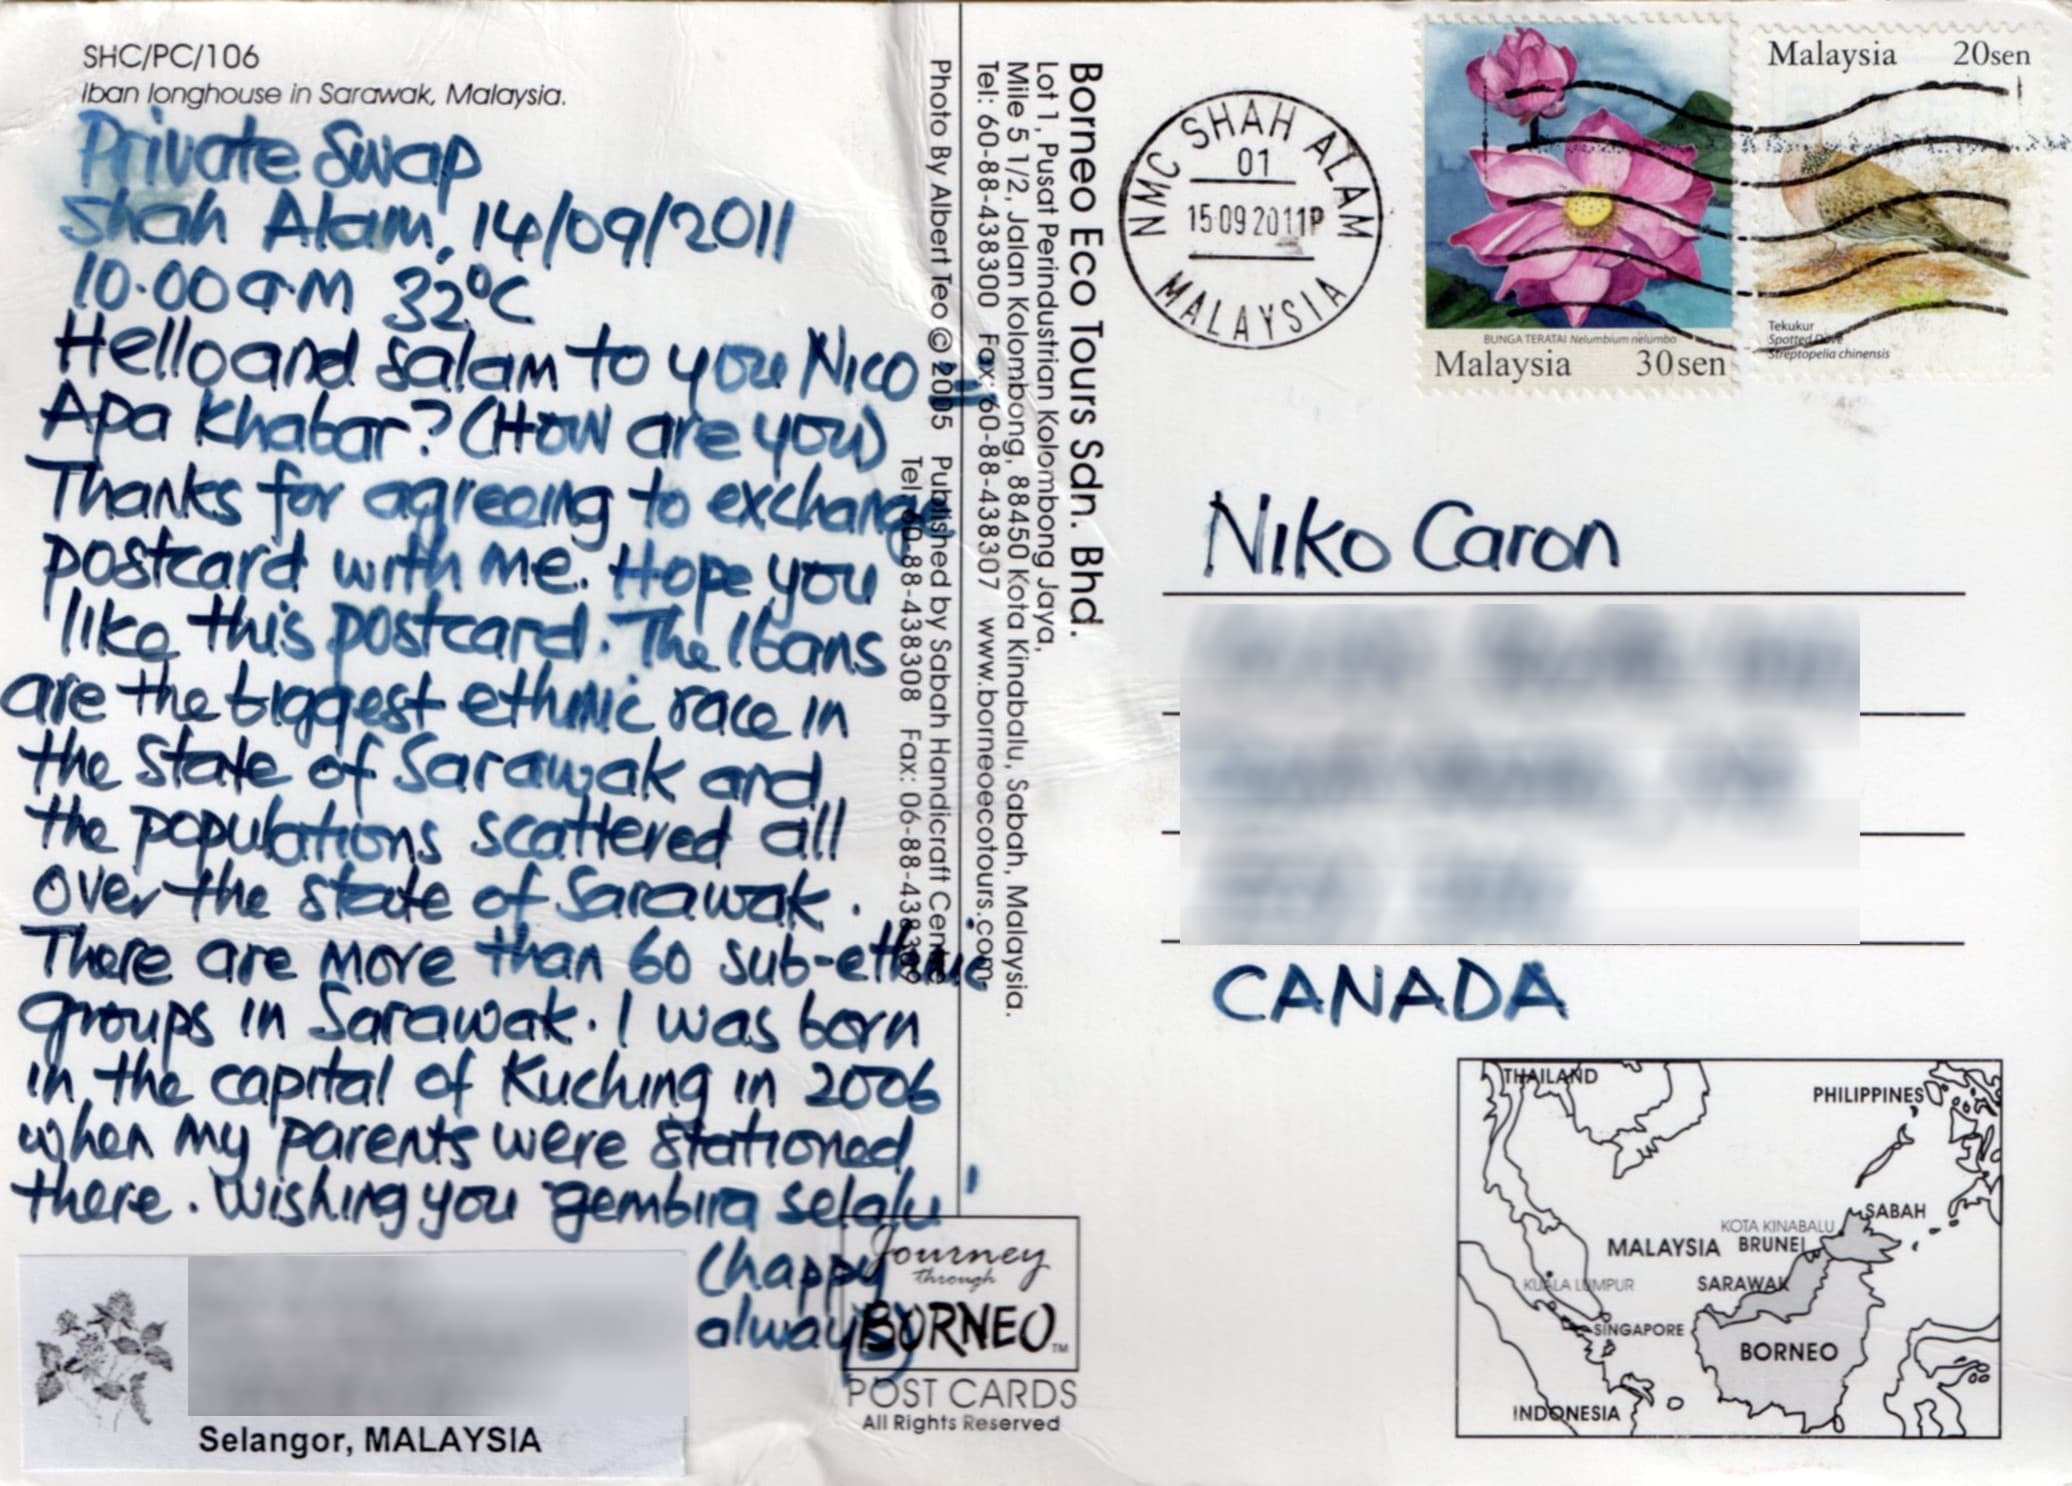 SHC/PC/106
Iban longhouse in Sarawak, Malaysia.
Private Swap
Shah Alam, 14/09/2011
10.00am 32°C
Hello and Salam to you Nico
Apa Khabar? (How are you)
Thanks for agreeing to exchange
postcard with me. Hope you
like this postcard. The Ibans
are the biggest ethnic race in
the state of Sarawak and
the populations scattered all
over the state of Sarawak.
There are more than 60 sub-ethnic
groups in Sarawak. I was born
in the capital of Kuching in 2006
when my parents were stationed
there. Wishing you "gembira selalu"
(happy
always)
Selangor, MALAYSIA
Borneo Eco Tours Sdn. Bhd.
Lot 1, Pusat Perindustrian Kolombong Jaya,
Mile 5 1/2, Jalan Kolombong, 88450 Kota Kinabalu, Sabah, Malaysia.
Tel: 60-88-438300 Fax: 60-88-438307 www.borneoecotours.com
Photo By Albert Teo © 2005 Published by Sabah Handicraft Centre
Tel: 60-88-438308 Fax: 06-88-438309
Journey
through
BORNEO™
POST CARDS
All Rights Reserved
SHAH ALAM
NMC
01
15 09 2011P
MALAYSIA
BUNGA TERATAI Nelumbium nelumbo
Malaysia 30sen
Malaysia 20sen
Tekukur
Spotted Dove
Streptopelia chinensis
Niko Caron
CANADA
THAILAND
PHILIPPINES
SABAH
KOTA KINABALU
MALAYSIA BRUNEI
KUALA LUMPUR SARAWAK
SINGAPORE
BORNEO
INDONESIA